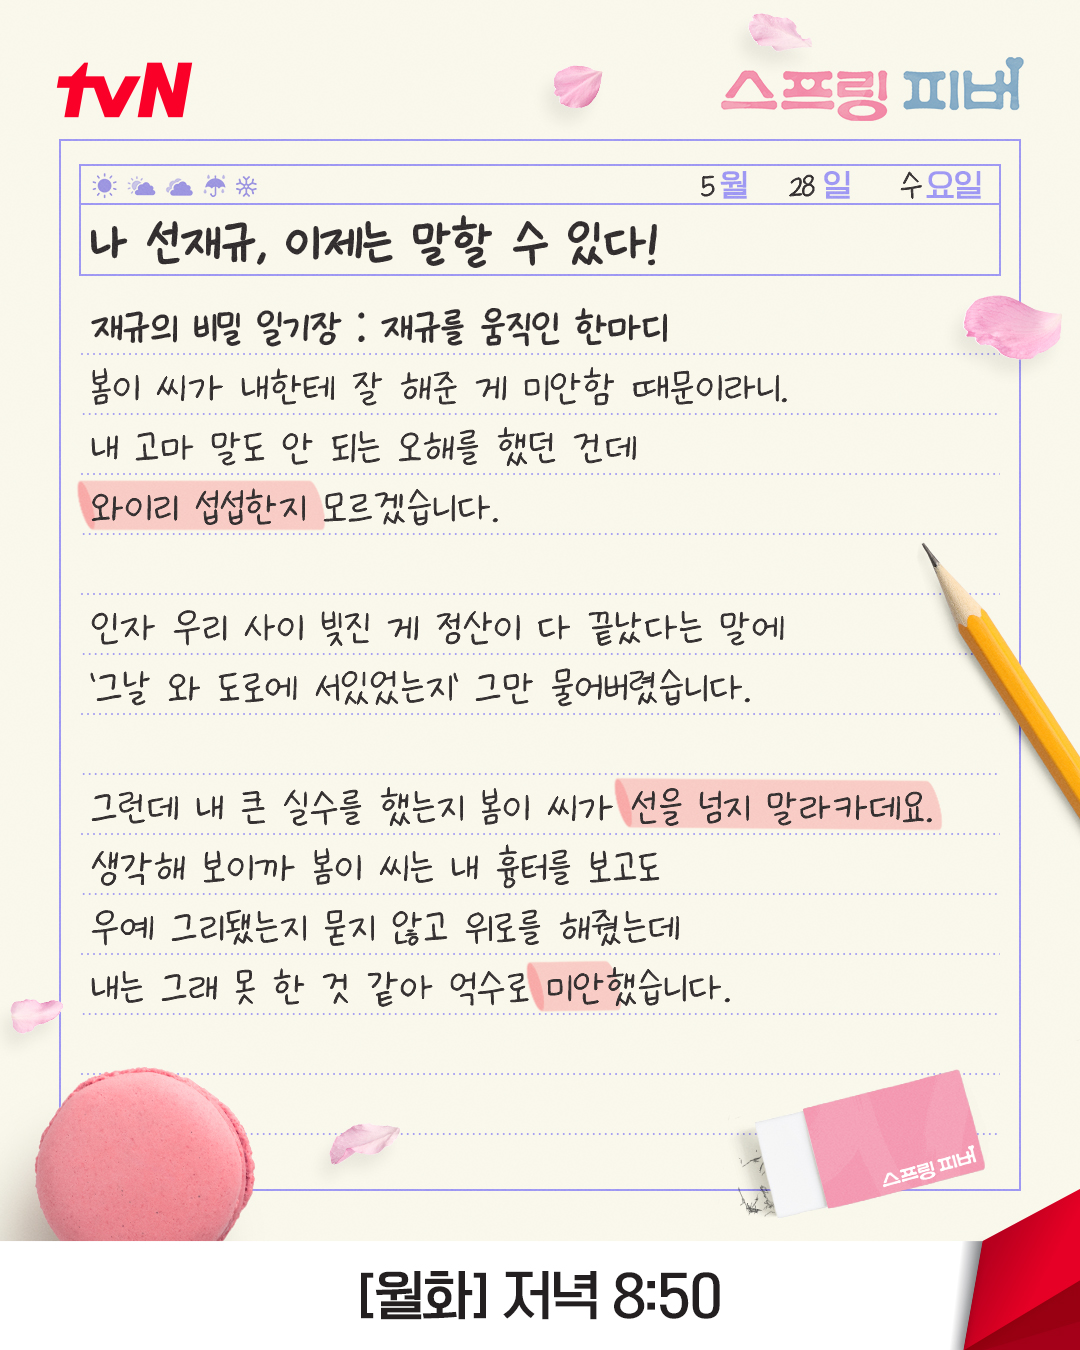 tvN
스프링 피버
5월 28일 수요일
나 선재규, 이제는 말할 수 있다!
재규의 비밀 일기장 : 재규를 움직인 한마디
봄이 씨가 내한테 잘 해준 게 미안함 때문이라니.
내 고마 말도 안 되는 오해를 했던 건데
와이리 섭섭한지 모르겠습니다.
인자 우리 사이 빚진 게 정산이 다 끝났다는 말에
'그날 와 도로에 서있었는지' 그만 물어버렸습니다.
그런데 내 큰 실수를 했는지 봄이 씨가 선을 넘지 말라카데요.
생각해 보이까 봄이 씨는 내 흉터를 보고도
우예 그리됐는지 묻지 않고 위로를 해줬는데
내는 그래 못 한 것 같아 억수로 미안했습니다.
스프링 피버
[월화] 저녁 8:50